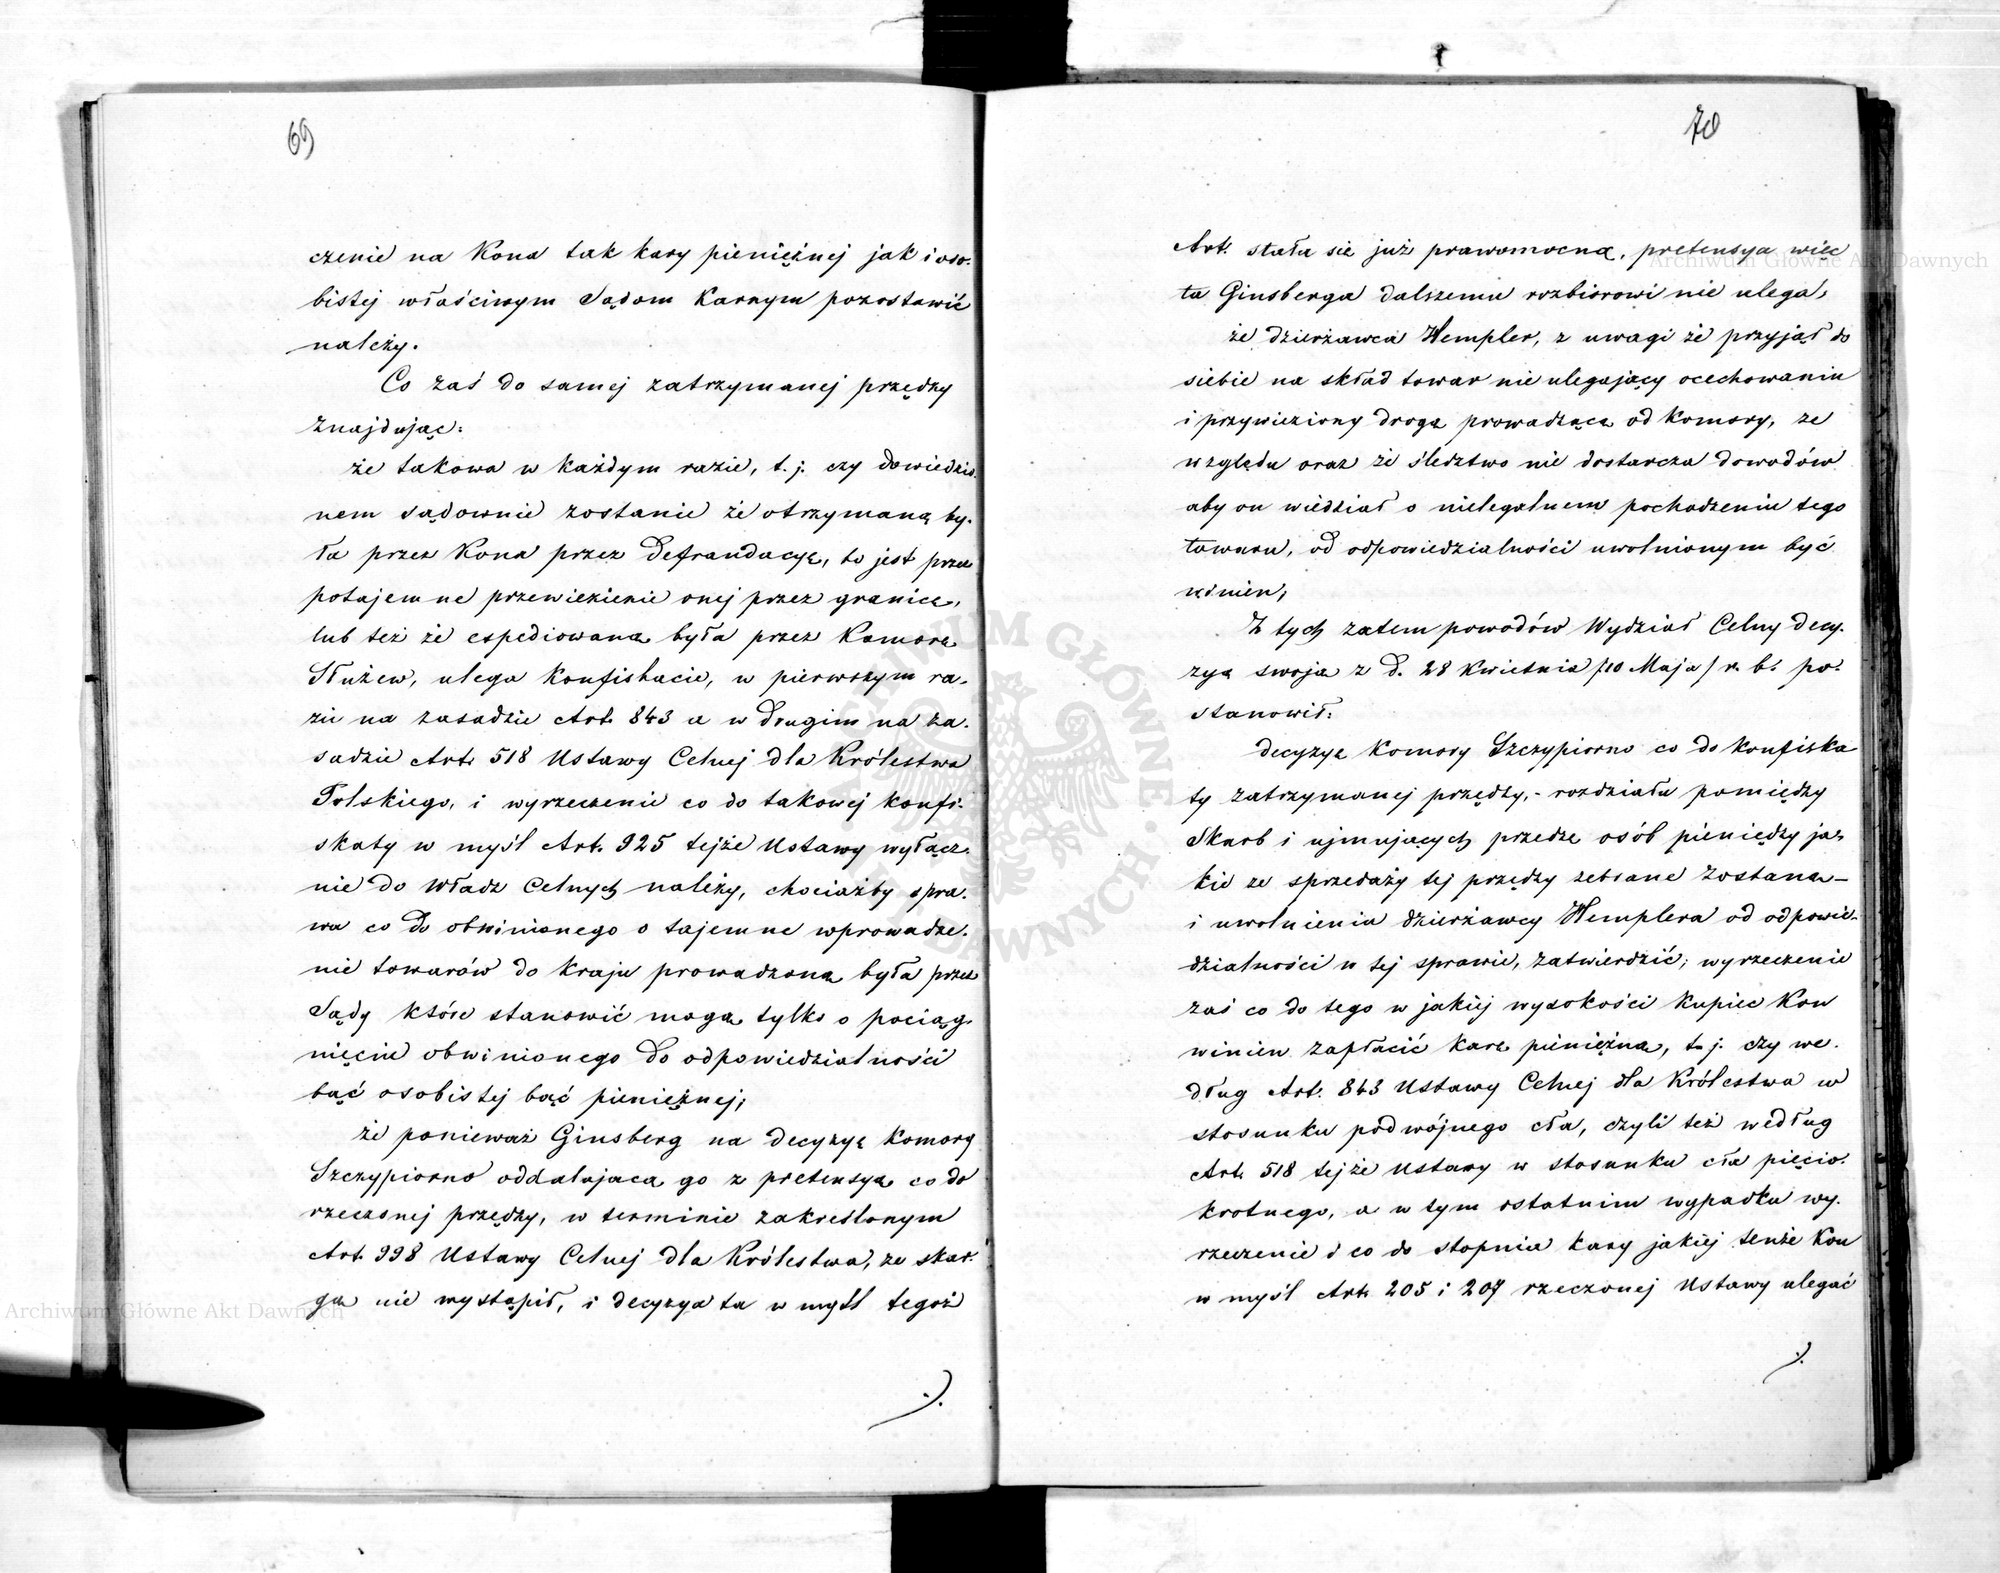 69
czenie na Kona tak kary pieniężnej jak i oso-
bistej właściwym Sądom Karnym pozostawić
należy.
Co zaś do samej zatrzymanej przędzy
znajdując:
że takowa w każdym razie, t. j. czy dowiedzio-
nem sądownie zostanie że otrzymaną by-
ła przez Kona przez defraudacyę, to jest przez
potajemne przewiezienie onej przez granicę,
lub też że expediowaną była przez Komorę
Służew, ulega konfiskacie, w pierwszym ra-
zie na zasadzie Art. 843 a w drugim na za-
sadzie Art. 518 Ustawy Celnej dla Królestwa
Polskiego, i wyrzeczenie co do takowej konfi-
skaty w myśl Art. 925 tejże Ustawy wyłącz-
nie do Władz Celnych należy, chociażby spra-
wa co do obwinionego o tajemne wprowadze-
nie towarów do kraju prowadzoną była przez
Sądy które stanowić mogą tylko o pociąg-
nięciu obwinionego do odpowiedzialności
bąć osobistej bąć pieniężnej;
że ponieważ Ginsberg na decyzyę Komory
Szczypiorno oddalającą go z pretensyą co do
rzeczonej przędzy, w terminie zakreślonym
Art. 998 Ustawy Celnej dla Królestwa, ze skar-
gą nie wystąpił, i decyzya ta w myśl tegoż
./.
70
Art. stała się już prawomocną, pretensya więc
ta Ginsberga dalszemu rozbiorowi nie ulega,
że dzierżawca Hempler, z uwagi że przyjął do
siebie na skład towar nie ulegający ocechowaniu
i przywieziony drogą prowadzącą od Komory, ze
względu oraz że śledztwo nie dostarcza dowodów
aby on wiedział o nielegalnem pochodzeniu tego
towaru, od odpowiedzialności uwolnionym być
winien;
Z tych zatem powodów Wydział Celny decy-
zyą swoją z d. 28 Kwietnia /10 Maja/ r. b. po-
stanowił:
decyzyę Komory Szczypiorno co do konfiska
ty zatrzymanej przędzy, - rozdziału pomiędzy
Skarb i ujmujących przędzę osób pieniędzy ja-
kie ze sprzedaży tej przędzy zebrane zostaną -
i uwolnienia dzierżawcy Hemplera od odpowie-
dzialności w tej sprawie, zatwierdzić; wyrzeczenie
zaś co do tego w jakiej wysokości kupiec Kon
winien zapłacić karę pieniężną, t. j. czy we-
dług Art. 843 Ustawy Celnej dla Królestwa w
stosunku podwójnego cła, czyli też według
Art. 518 tejże Ustawy w stosunku cła pięcio-
krotnego, a w tym ostatnim wypadku wy-
rzeczenie i co do stopnia kary jakiej tenże Kon
w myśl Art. 205 i 207 rzeczonej Ustawy ulegać
./.
Archiwum Główne Akt Dawnych
Archiwum Główne Akt Dawnych
ARCHIWUM GŁÓWNE AKT DAWNYCH